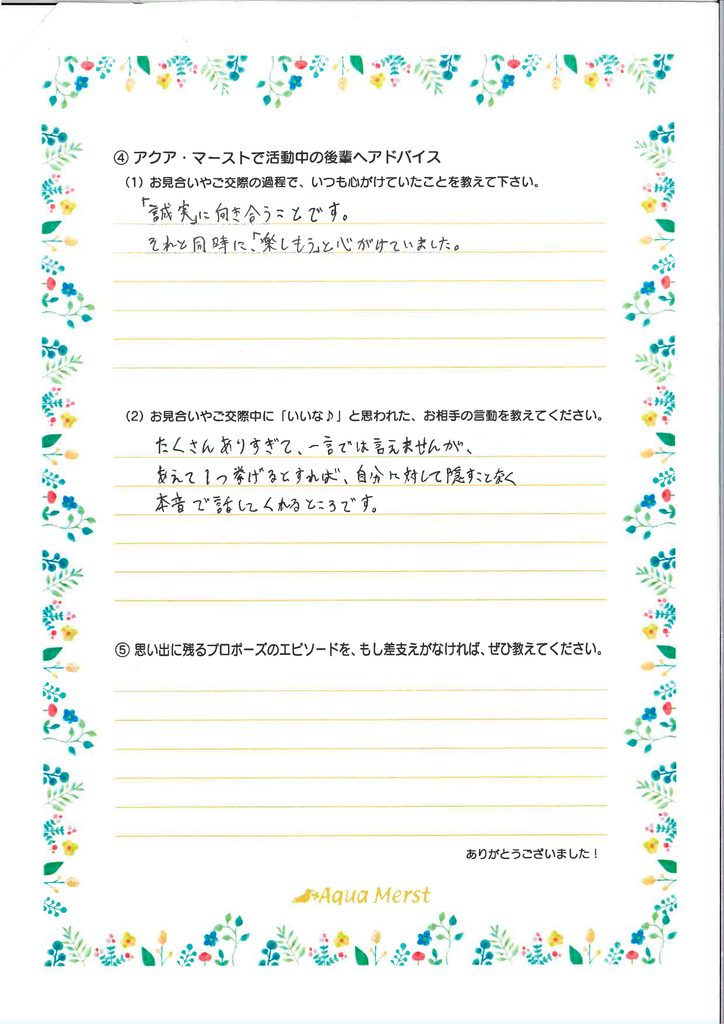 ④ アクア・マーストで活動中の後輩へアドバイス
（1）お見合いやご交際の過程で、いつも心がけていたことを教えて下さい。
「誠実」に向き合うことです。
それと同時に、「楽しもう」と心がけていました。
（2）お見合いやご交際中に「いいな♪」と思われた、お相手の言動を教えてください。
たくさんありすぎて、一言では言えませんが、
あえて1つ挙げるとすれば、自分に対して隠すことなく
本音で話してくれるところです。
⑤ 思い出に残るプロポーズのエピソードを、もし差支えがなければ、ぜひ教えてください。
ありがとうございました！
Aqua Merst